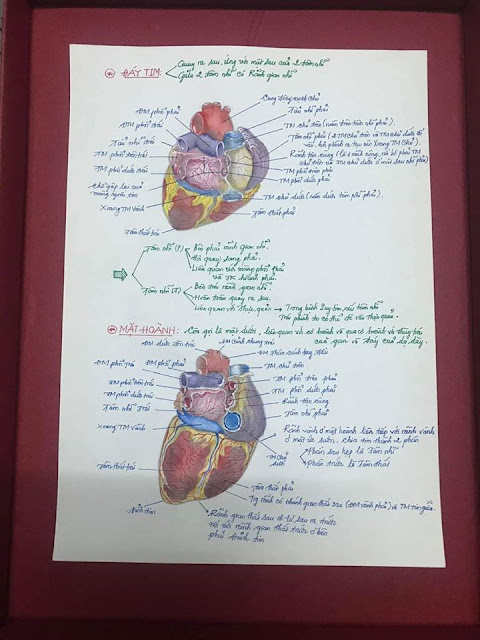 ĐÁY TIM:
Quay ra sau, ứng với mặt sau của 2 tâm nhĩ
Giữa 2 tâm nhĩ có Rãnh gian nhĩ
ĐM phổi phải
ĐM phổi trái
Tiểu nhĩ trái
TM phổi trên trái
TM phổi dưới trái
Chỗ gấp lại của
màng ngoài tim
Xoang TM Vành
Tâm thất trái
Cung động mạch chủ
Tiểu nhĩ phải
TM chủ trên (nằm trên tâm nhĩ phải).
Tâm nhĩ phải (2 TM Chủ trên và TM chủ dưới đổ
TM phổi trên phải
TM phổi dưới phải
TM chủ dưới (nằm dưới tâm nhĩ phải).
Tâm thất phải
Tâm nhĩ (P)
Bên phải rãnh gian nhĩ.
Hơi quay sang phải.
Liên quan với màng phổi phải
và TK hoành phải.
Tâm nhĩ (T)
Bên trái rãnh gian nhĩ.
Hoàn toàn quay ra sau.
Liên quan với Thực quản
Trong bệnh suy tim nếu tâm nhĩ
Trái phình to có thể đè vào thực quản.
MẶT HOÀNH:
Còn gọi là mặt dưới, liên quan với cơ hoành và qua cơ hoành với thùy trái
của gan và đáy của dạ dày.
ĐM dưới đòn trái
ĐM cảnh chung trái
ĐM thân cánh tay đầu
ĐM phổi Trái
ĐM phổi phải
TM chủ trên
TM phổi trên trái
TM phổi trên phải
TM phổi dưới trái
TM phổi dưới phải
Tâm nhĩ Trái
Rãnh tận cùng
Tâm nhĩ phải
Xoang TM Vành
Rãnh vành ở mặt hoành liên tiếp với rãnh vành
ở mặt ức sườn, chia tim thành 2 phần
Phần sau hẹp là Tâm nhĩ
Phần trước là Tâm thất
TM Chủ
dưới
Tâm thất trái
Tâm thất phải
Đỉnh tim
Rãnh gian thất sau đi từ sau ra trước
nối với rãnh gian thất trước ở bên
phải đỉnh tim